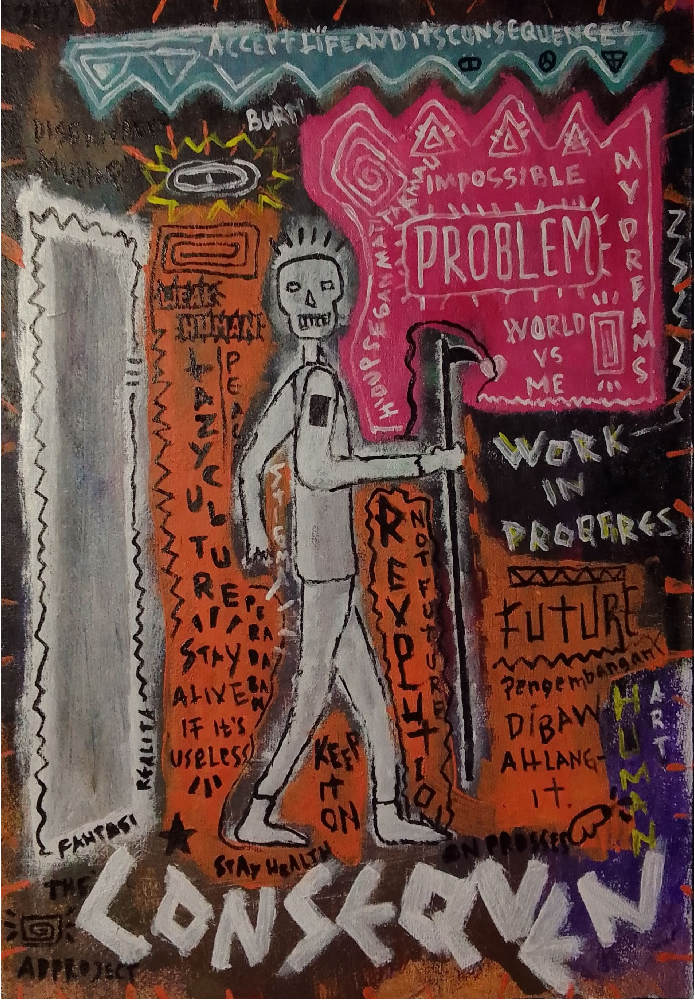 ACCEPT LIFE AND ITS CONSEQUENCES
IMPOSSIBLE
PROBLEM
WORLD
VS
ME
MY DREAMS
HIDUP SEGAN MATI
WEAK
HUMAN
LAZY CULTURE
STAY
ALIVE
IF IT'S
USELESS
PERADABAN
REVOLUTIO
NOT FUTURE
KEEP
IT
ON
WORK
IN
PROGRES
FUTURE
Pengembangan
DIBAW
AHLANG-
IT.
HUMAN
ART
REALITA
FANTASI
STAY HEALTH
ON PROSSES
THE
CONSEQUEN
APPROJECT